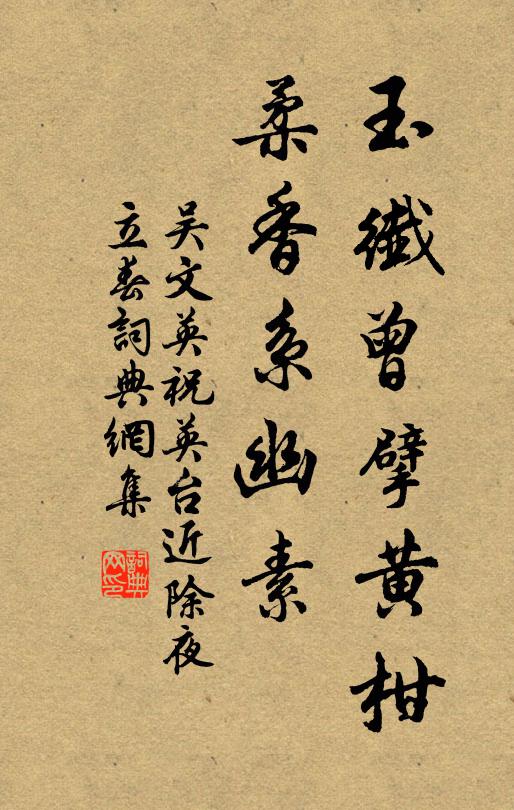 玉纖曾擘黃柑
柔香系幽素
吴文英祝英台近除夜
立春詞典網集
詞典网印